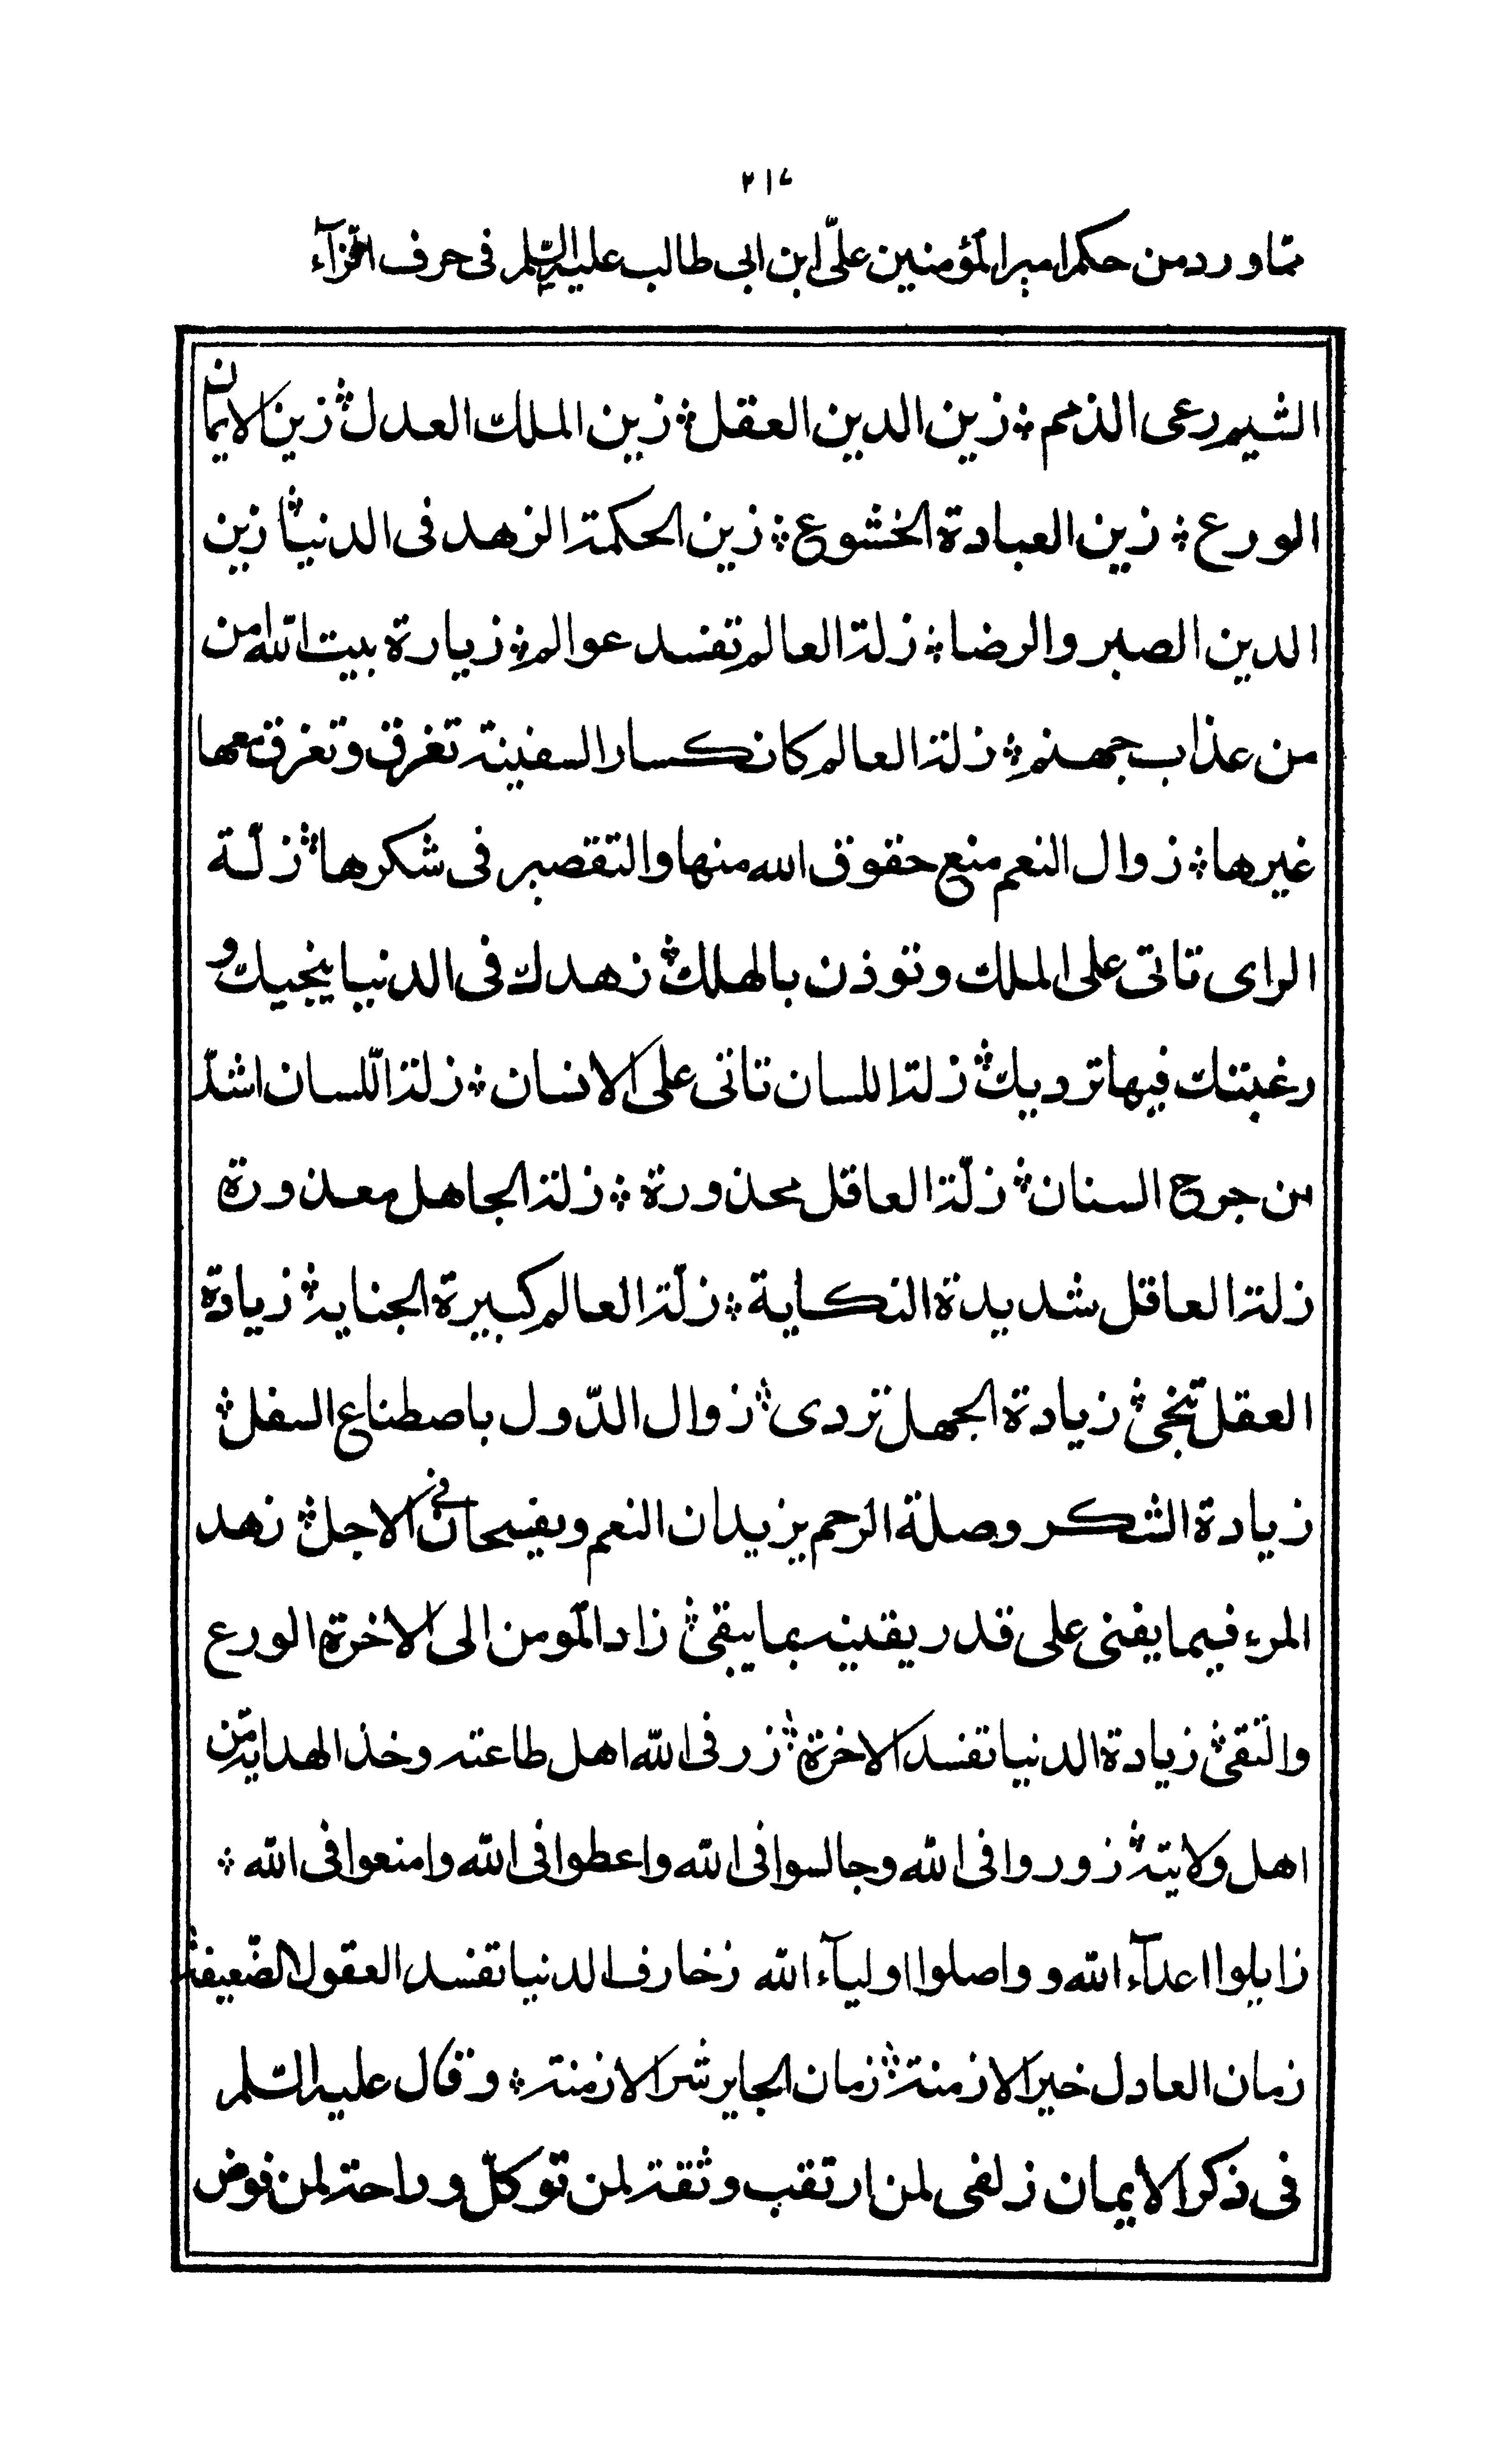 ٢١٧
مما ورد من حكم امير المؤمنين علىّ ابن ابى طالب عليه السّلم فى حرف الزآء
الشيم رعى الذمم ؞ زين الدين العقل ؞ زين الملك العدل ؞ زين الايمان
الورع ؞ زين العبادة الخشوع ؞ زين الحكمة الزهد فى الدنيا ؞ زين
الدين الصبر والرضا ؞ زلة العالم تفسد عوالم ؞ زيارة بيت الله امن
من عذاب جهنم ؞ زلة العالم كانكسار السفينة تغرق وتغرق معها
غيرها ؞ زوال النعم منع حقوق الله منها والتقصير فى شكرها ؞ زلّة
الراى تاتى على الملك وتوذن بالهلك ؞ زهدك فى الدنيا ينجيك و
رغبتك فيها ترديك ؞ زلة اللسان تاتى على الانسان ؞ زلة الّلسان اشدّ
من جرح السنان ؞ زلّة العاقل محذورة ؞ زلة الجاهل معذورة
زلة العاقل شديدة النكاية ؞ زلّة العالم كبيرة الجناية ؞ زيادة
العقل تنجى ؞ زيادة الجهل تردى ؞ زوال الدّول باصطناع السفل ؞
زيادة الشكر وصلة الرحم يزيدان النعم ويفسحان فى الاجل ؞ زهد
المرء فيما يفنى على قدر يقينه بما يبقى ؞ زاد المومن الى الاخرة الورع
والتقى ؞ زيادة الدنيا تفسد الاخرة ؞ زر فى الله اهل طاعته وخذ الهداية من
اهل ولايته ؞ زوروا فى الله وجالسوا فى الله واعطوا فى الله وامنعوا فى الله ؞
زايلوا اعدآء الله و واصلوا اوليآء الله زخارف الدنيا تفسد العقول الضّعيفة ؞
زمان العادل خير الازمنة ؞ زمان الجاير شر الازمنة ؞ وقال عليه السّلم
فى ذكر الايمان زلفى لمن ارتقب وثقة لمن توكلّ وراحة لمن فوض